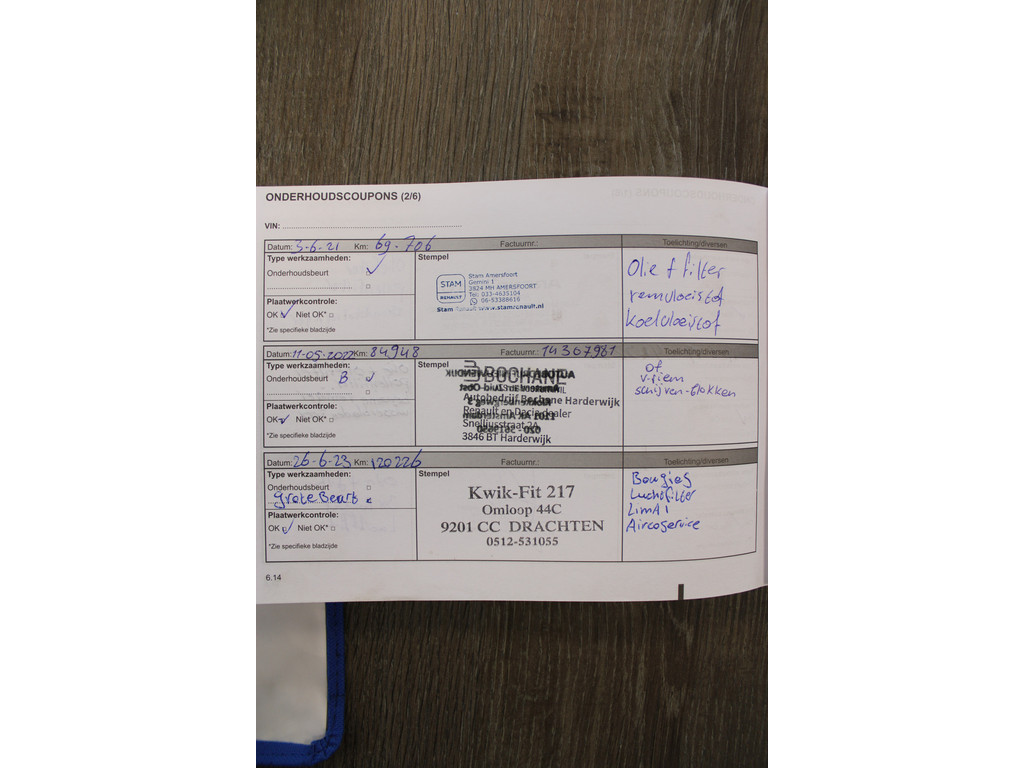 ONDERHOUDSCOUPONS (2/6)
VIN:
Datum: 3-6-21 Km: 69.706 Factuurnr.: Toelichting/diversen
Type werkzaamheden:
Onderhoudsbeurt
Plaatwerkcontrole:
OK Niet OK*
*Zie specifieke bladzijde
Stempel
STAM
RENAULT
Stam Amersfoort
Gemini 1
3824 MH AMERSFOORT
Tel: 033-4635104
06-53388616
Stam Renault www.stamrenault.nl
Olie + filter
remvloeistof
koelvloeistof
Datum: 11-05-2022 Km: 84948 Factuurnr.: 14367981 Toelichting/diversen
Type werkzaamheden:
Onderhoudsbeurt B
Plaatwerkcontrole:
OK Niet OK*
*Zie specifieke bladzijde
Stempel
BOCHANE
Autobedrijf Bochane Harderwijk
Renault en Dacia dealer
Snelliusstraat 2A
3846 BT Harderwijk
of
schijven-blokken
Datum: 26-6-23 Km: 120226 Factuurnr.: Toelichting/diversen
Type werkzaamheden:
Onderhoudsbeurt
Grote Beurt
Plaatwerkcontrole:
OK Niet OK*
*Zie specifieke bladzijde
Stempel
Kwik-Fit 217
Omloop 44C
9201 CC DRACHTEN
0512-531055
Bougies
Luchtfilter
Aircoservice
6.14